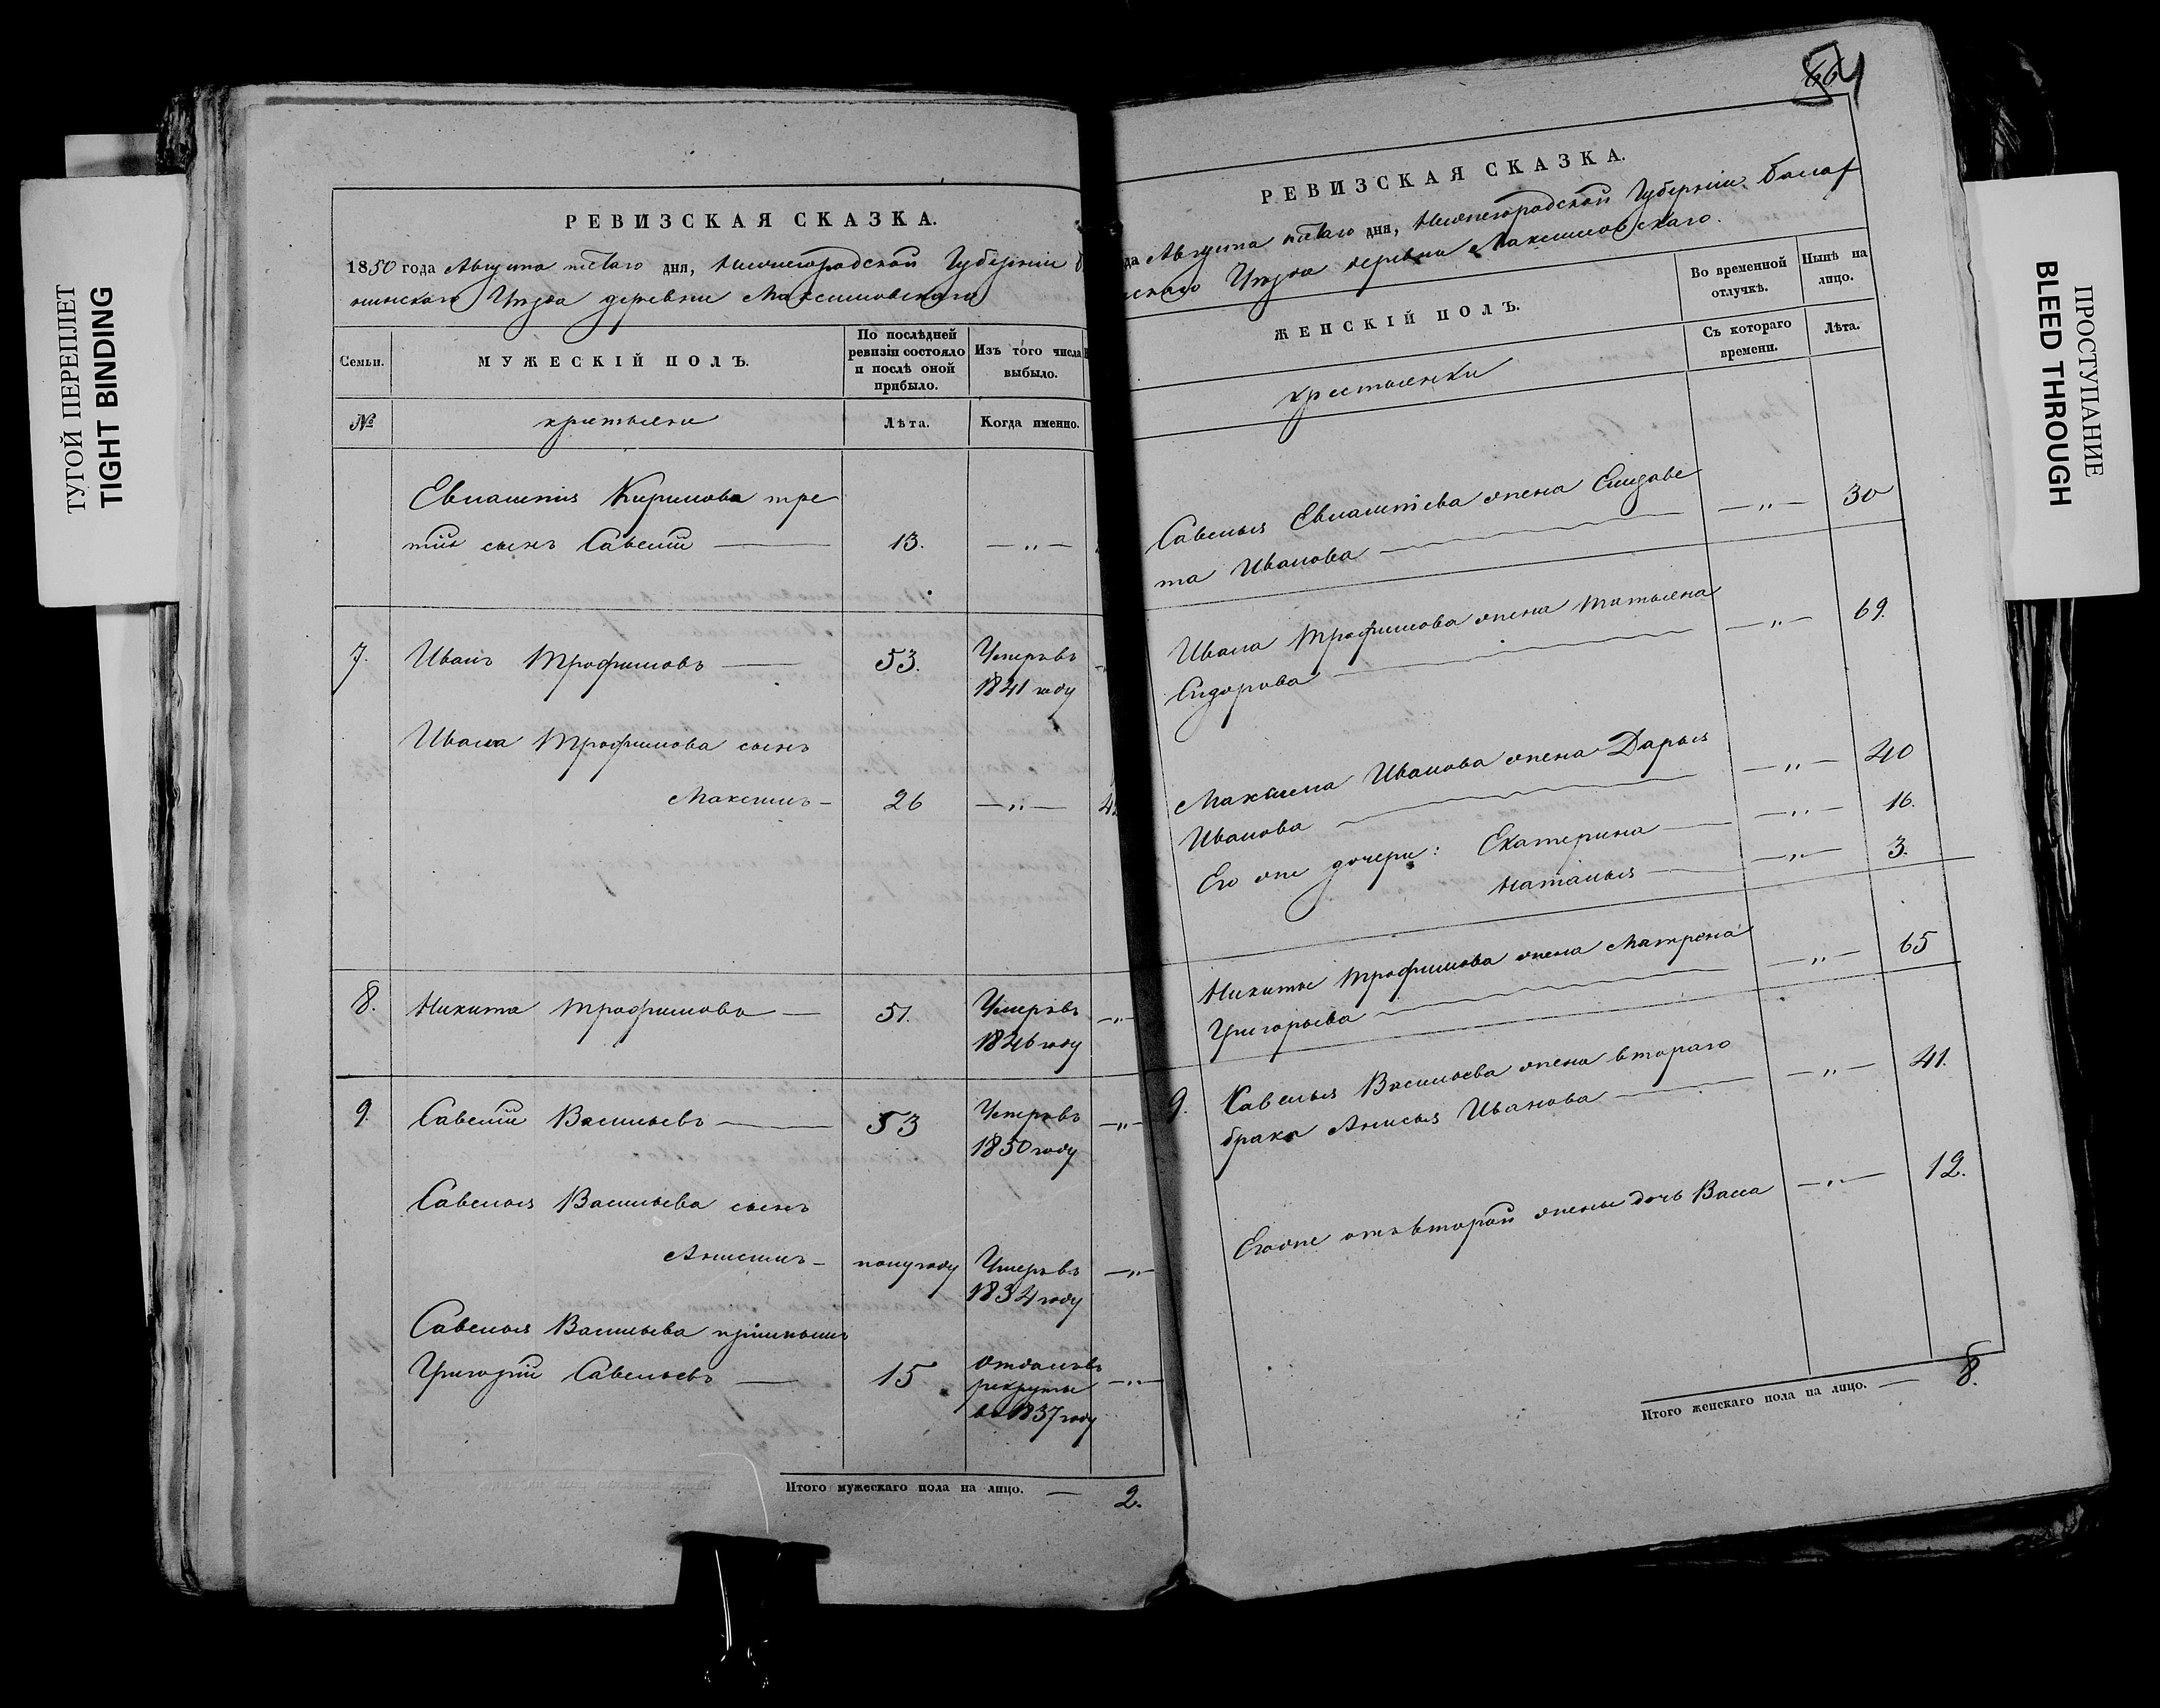 ТУГОЙ ПЕРЕПЛЕТ
TIGHT BINDING
РЕВИЗСКАЯ СКАЗКА.
1850 года Августа пятаго дня, Нижегородской Губерніи
Уѣзда деревни Максимовскаго
Семьи.
МУЖЕСКІЙ ПОЛЪ.
По послѣдней ревизіи состояло и послѣ оной прибыло.
Изъ того числа выбыло.
№
крестьяне
Лѣта.
Когда именно.
Евлампія Кирилова тре
тій сынъ Савелій — 13. — „ —
7. Иванъ Трофимовъ — 53. Умеръ въ
1841 году
Ивана Трофимова сынъ
Максимъ — 26 — „ —
8. Никита Трофимовъ — 51. Умеръ въ — „ —
1846 году
9. Савелій Васильевъ — 53 Умеръ въ — „ —
1850 году
Савелья Васильева сынъ
Анисимъ — полугоду Умеръ въ — „ —
1834 году
Савелья Васильева пріимышъ
Григорій Савельевъ — 15 Отданъ въ — „ —
рекруты
въ 1837 году
Итого мужескаго пола на лицо. — 2.
РЕВИЗСКАЯ СКАЗКА.
да Августа пятаго дня, Нижегородской Губерніи Балах
Уѣзда деревни Максимовскаго.
ЖЕНСКІЙ ПОЛЪ.
Во временной отлучкѣ.
Нынѣ на лицо.
Съ котораго времени.
Лѣта.
крестьянки
Савелья Евлампіева жена Елизаве
та Иванова — „ — 30
Ивана Трофимова жена Татьяна
Сидорова — „ — 69.
Максима Иванова жена Дарья
Иванова — „ — 40
Его же дочери: Екатерина — „ — 16.
Наталья — „ — 3.
Никиты Трофимова жена Матрена
Григорьева — „ — 65
9. Савелья Васильева жена втораго
брака Анисья Иванова — „ — 41.
Его же отъ второй жены дочь Васса — „ — 12.
Итого женскаго пола на лицо. — 8.
ПРОСТУПАНИЕ
BLEED THROUGH